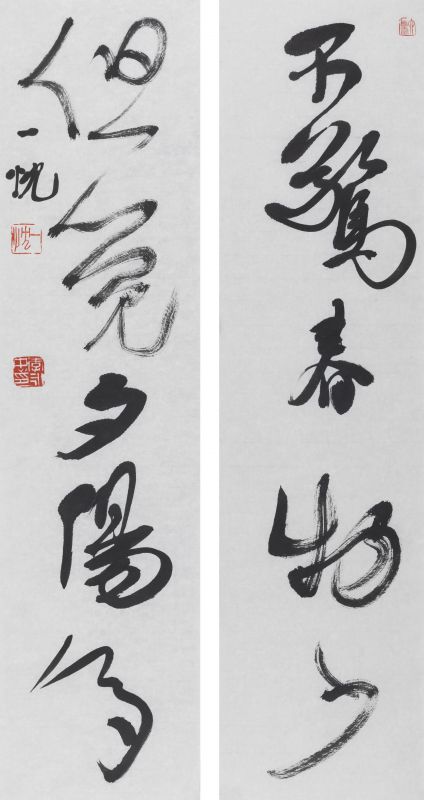 不驚春物少
但覺夕陽多
一忱